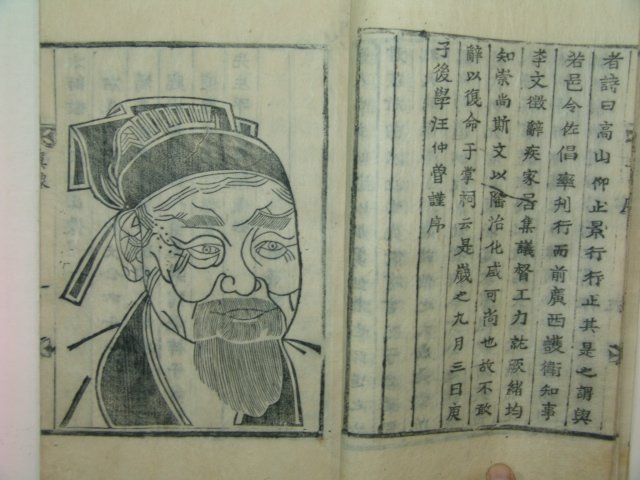 者詩曰高山仰止景行行止其是之謂與
若邑令佐倡率刋行而前廣西護衛知事
李文徵辭疾家居集議督工力就厥緒均
知崇尚斯文以隆治化咸可尚也故不敢
辭以復命于掌祠云是歲之九月三日庚
子後學汪仲魯謹序